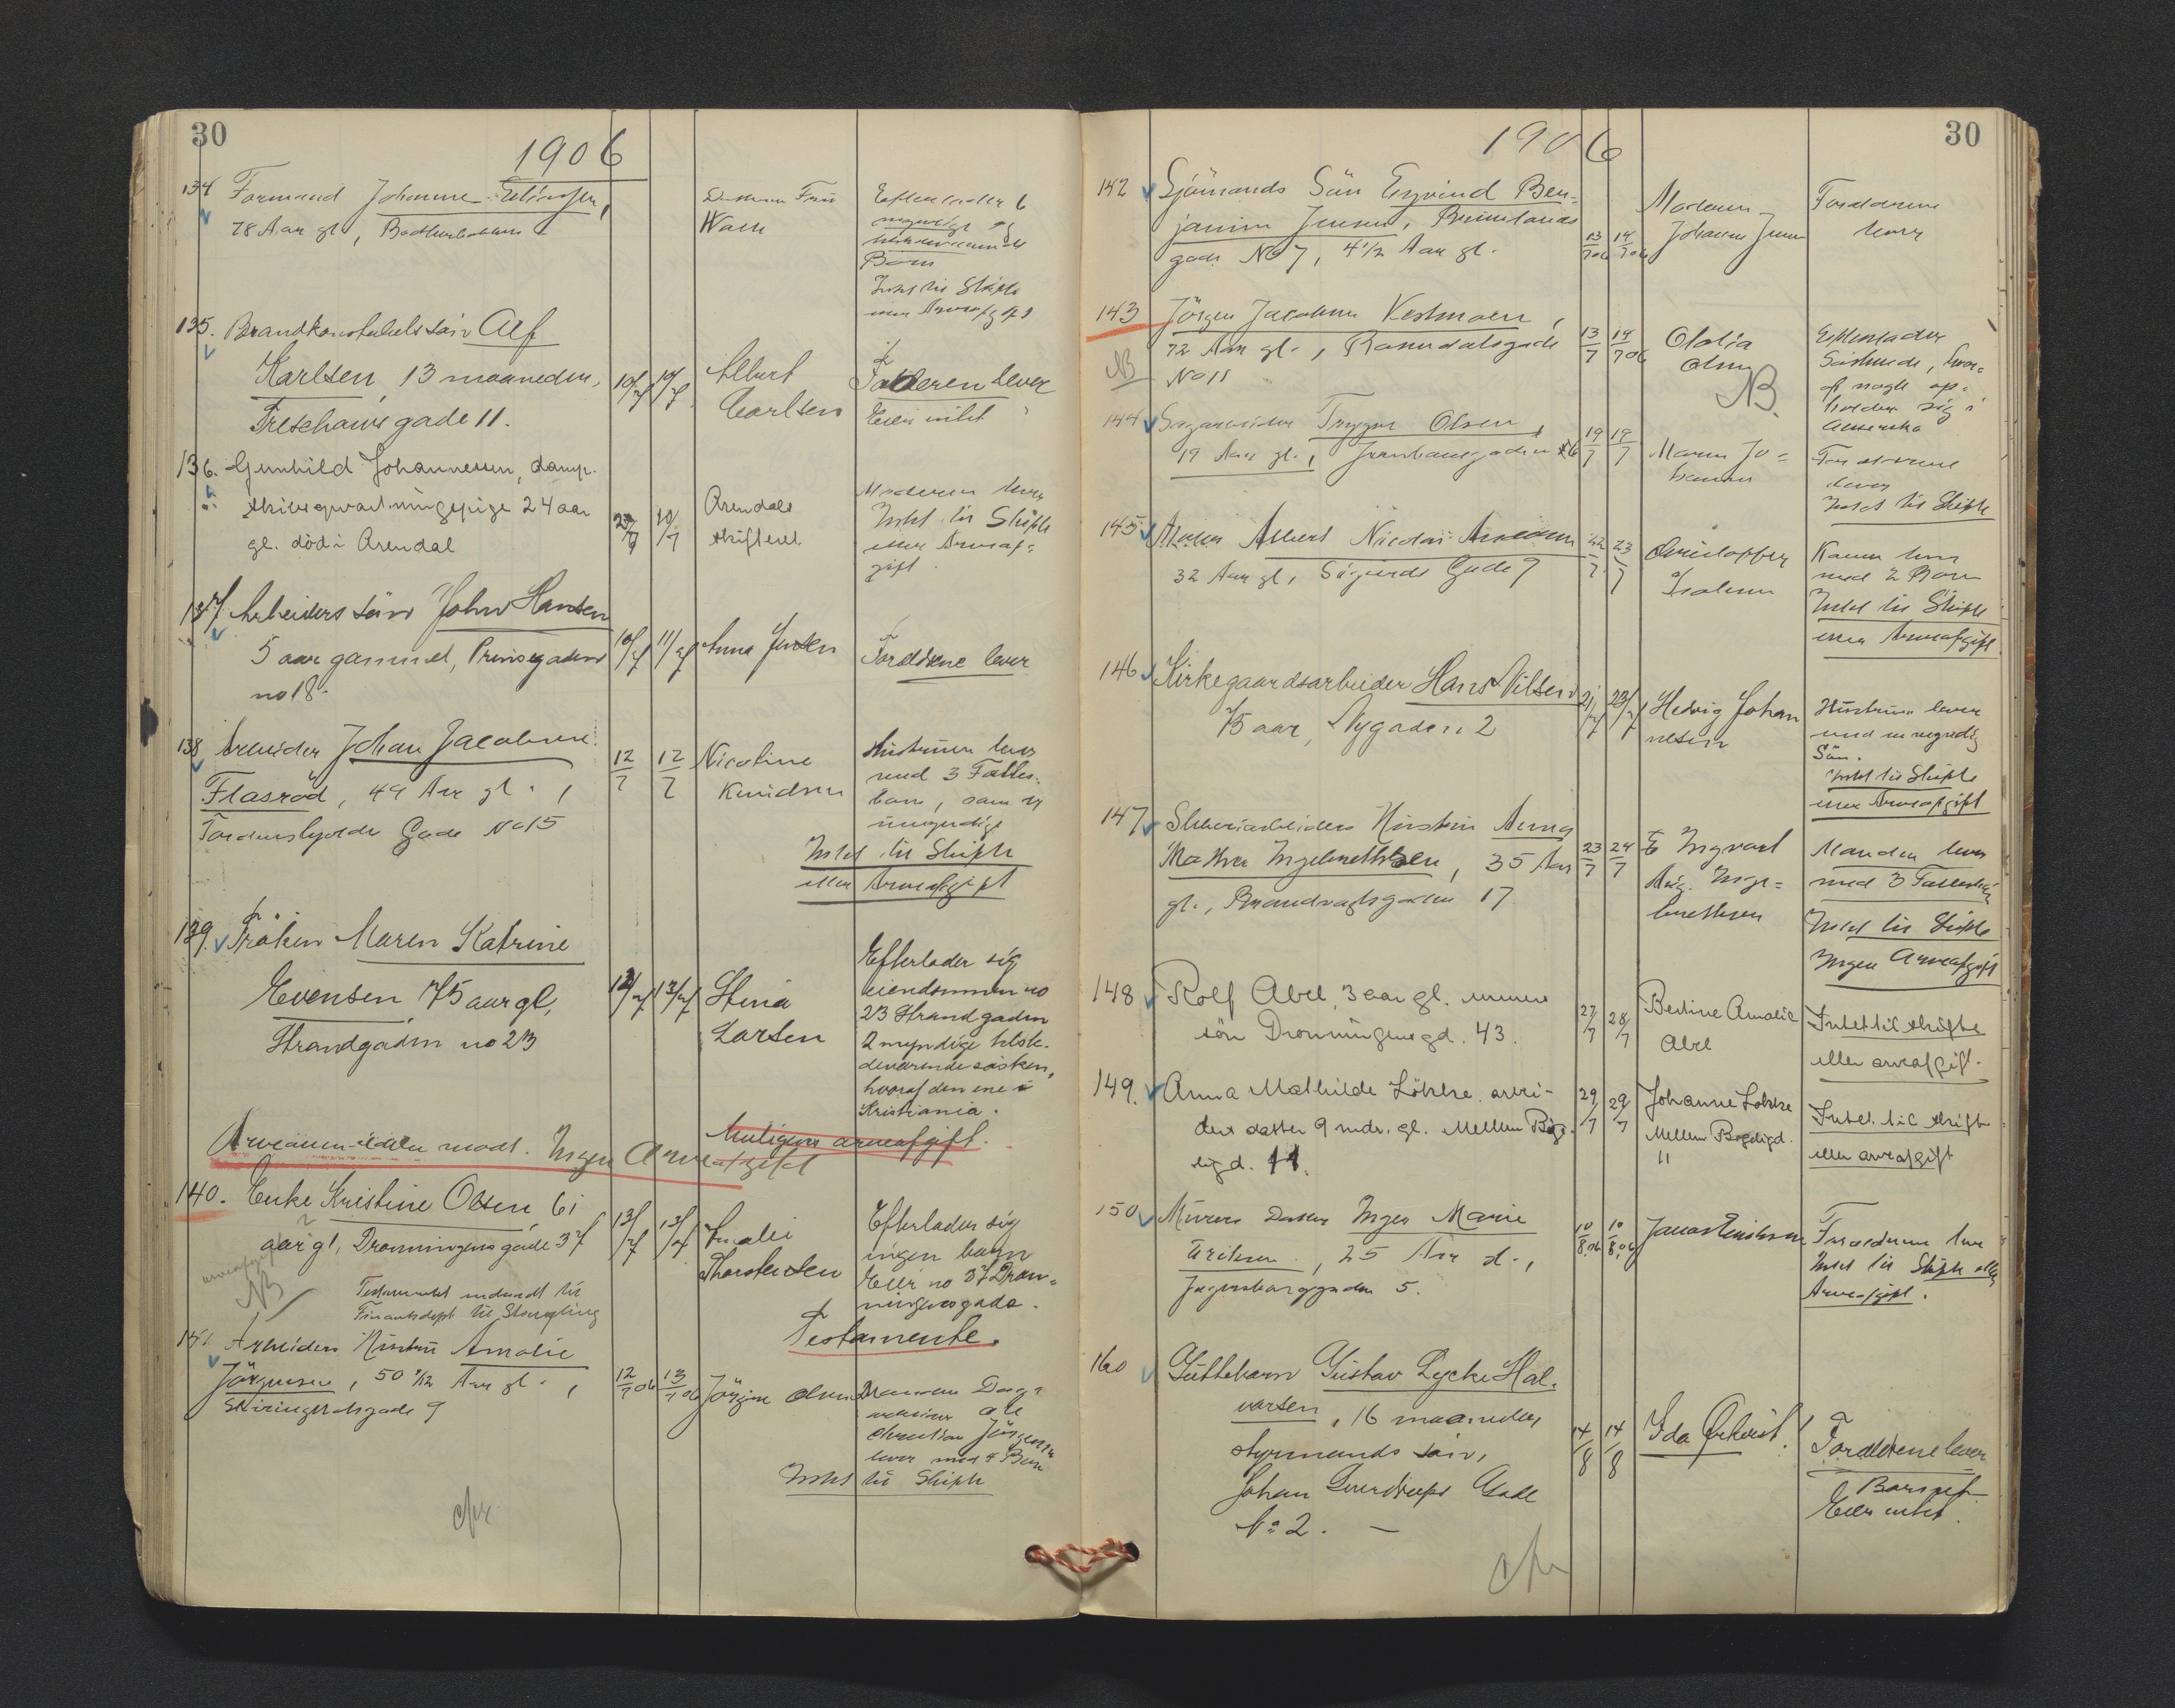 30
1906
134 Formand Johannes
78 Aar gl,
Efterlader 6
Børn
Intet til Skifte
135. Brandkonstabels søn Alf
Karlsen, 13 maaneder,
Treschows gade 11.
10/7 10/7
Albert
Carlsen
Faderen lever
Eier intet
136. Gunhild Johannessen, damp-
skibsopvartningspige 24 aar
gl. död i Arendal
10/7
Arendals
skifteret.
Moderen lever
Intet til Skifte
eller Arveaf-
gift
137 Arbeiders søn John Hansen
5 aar gammel, Prinsegaden
no 18.
10/7 11/7
Anna Jensen
Forældrene lever
138 Arbeider Johan Jacobsen
Flasröd, 49 Aar gl.,
Tordenskjolds Gade No 15
12/7 12/7
Nicoline
Knudsen
Hustruen lever
med 3 Fælles-
børn, som er
umyndige
Intet til Skifte
eller Arveafgift
139. Fröken Maren Katrine
Evensen, 75 aar gl,
Strandgaden no 23
12/7 12/7
Stina
Larsen
Efterlader sig
eiendommen no
23 Strandgaden
2 myndige tilste-
deværende søsken,
hvoraf den ene i
Kristiania.
Muligens arveafgift.
Arveanmeldelse modt. Ingen Arveafgift
140. Enke Kristine Olsen, 61
aar gl, Dronningens gade 37
13/7 13/7
Amalie
Thorstensen
Efterlader sig
ingen barn
Eier no 37 Dron-
ningens gade.
Testamente.
NB
Testamentet indsendt til
Finantsdept til Stempling
141 Arbeiders Hustru Amalie
Jörgensen, 50 Aar gl.,
Skiringssalsgade 9
12/7 06 13/7 06
Jörgine Olsen
Manden Dag-
arbeider Ole
Christian Jörgensen
lever med 4 Børn
Intet til Skifte
30
1906
142 Sjömands Sön Eyvind Ben-
jamin Jensen,
gade No 7, 4 1/2 Aar gl.
13/7 06 14/7 06
Moderen
Johanne Jensen
Forældrene
lever
143 Jörgen Jacobsen Vestmoen,
72 Aar gl., Ramdalsgade
No 11
NB
13/7 14/7 06
Olalia
Olsen
NB.
Efterlader
Söskende, hvor-
af nogle op-
holder sig i
Amerika
144 Sagarbeider Trygve Olsen,
19 Aar gl., Jernbanegaden 26
19/7 19/7
Maren Jo-
hansen
Forældrene
lever
Intet til Skifte
145 Albert Nicolai
32 Aar gl, Sigurds Gade 7
22/7 23/7
Christopher
Isaksen
Konen lever
med 2 Børn
Intet til Skifte
eller Arveafgift
146 Kirkegaardsarbeider Hans Nilsen
75 aar, Nygaden 2
21/7 23/7
Hedvig Johan
nesen
Hustruen lever
med en myndig
Sön.
Intet til Skifte
eller Arveafgift
147 Sliberiarbeiders Hustru Anna
Mathea Ingebrethsen, 35 Aar
gl., Brandvagtsgaden 17
23/7 24/7
E Ingvart
Aug. Inge-
brethsen
Manden lever
med 3 Fællesbørn
Intet til Skifte
Ingen Arveafgift
148 Rolf Abel, 3 aar gl. murers
sön Dronningensgd. 43.
27/7 28/7
Bertine Amalie
Abel
Intet til skifte
eller arveafgift.
149. Anna Mathilde Lökke, arbei-
ders datter 9 mdr. gl. Mellem Bøge-
ligd. 11.
29/7 29/7
Johanne Lökke
Mellem Bøgeligd.
11
Intet til skifte
eller arveafgift
150 Murers Datter Inger Marie
Eriksen, 25 Aar gl.,
Jegersborggaden 5.
10/8.06 10/8.06
Forældrene lever
Intet til Skifte eller
Arveafgift.
160 Guttebarn Gustav Lycke Hal-
vorsen, 16 maaneder
styrmands søn,
Johan Sverdrups Gade
No 2. —
14/8 14/8
Ida Qvikvist.
Forældrene lever
Barnet
Eier intet.